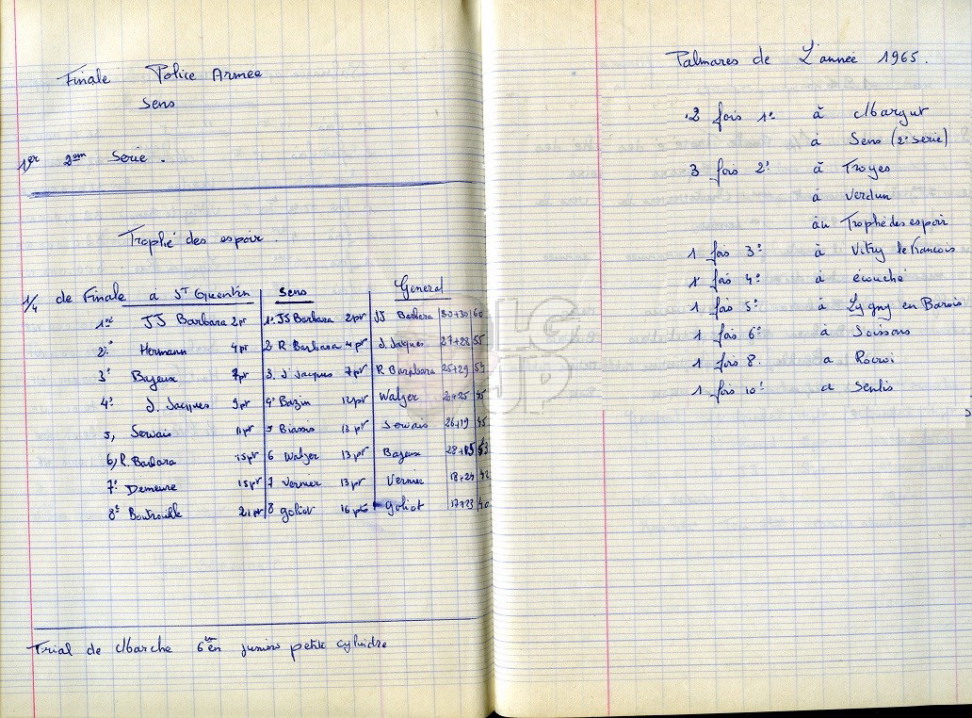 Finale Police Armee
Sens
1er 2em Serie.
Trophé des espoir.
1/4 de Finale à St Quentin Sens General
1er JJ Barbara 2pt 1er JJ Barbara 2pt JJ Barbara 30+30 60
2e Hermann 4pt 2 R Barbara 4pt J. Jacques 27+28 55
3e Bajeux 7pt 3. J Jacques 7pt R Barbara 25+29 54
4e J. Jacques 9pt 4e Bazin 12pt Walzer 45
5, Servais 11pt 5 12pt Servais 26+19 45
6, R. Barbara 15pt 6 Walzer 13pt Bajeux
7e Demeure 15pt 7 Vernier 13pt Vernier 18+24 42
8e Boutrouille 21pt 8 Goliot 16pts Goliot 17+23 40
Trial de Marche 6em en juniors petite cylindre
Palmares de L'année 1965.
2 fois 1er à Margut
à Sens (2e serie)
3 fois 2e à Troyes
à Verdun
au Trophé des espoir
1 fois 3e à Vitry le Francois
1 fois 4e à écouché
1 fois 5e à Lygny en Barois
1 fois 6e à Soissons
1 fois 8. a Rocroi
1 fois 10e a Senlis